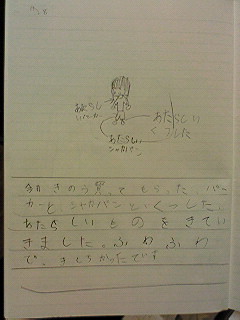 あたらしい
パーカー
あたらしい
くつした
あたらしい
シャカパン
きのう買てもらった、パー
カーと、シャカパンと、くつした。
あたらしいものをきてい
きました。ふわふわ
で、きもちかったです